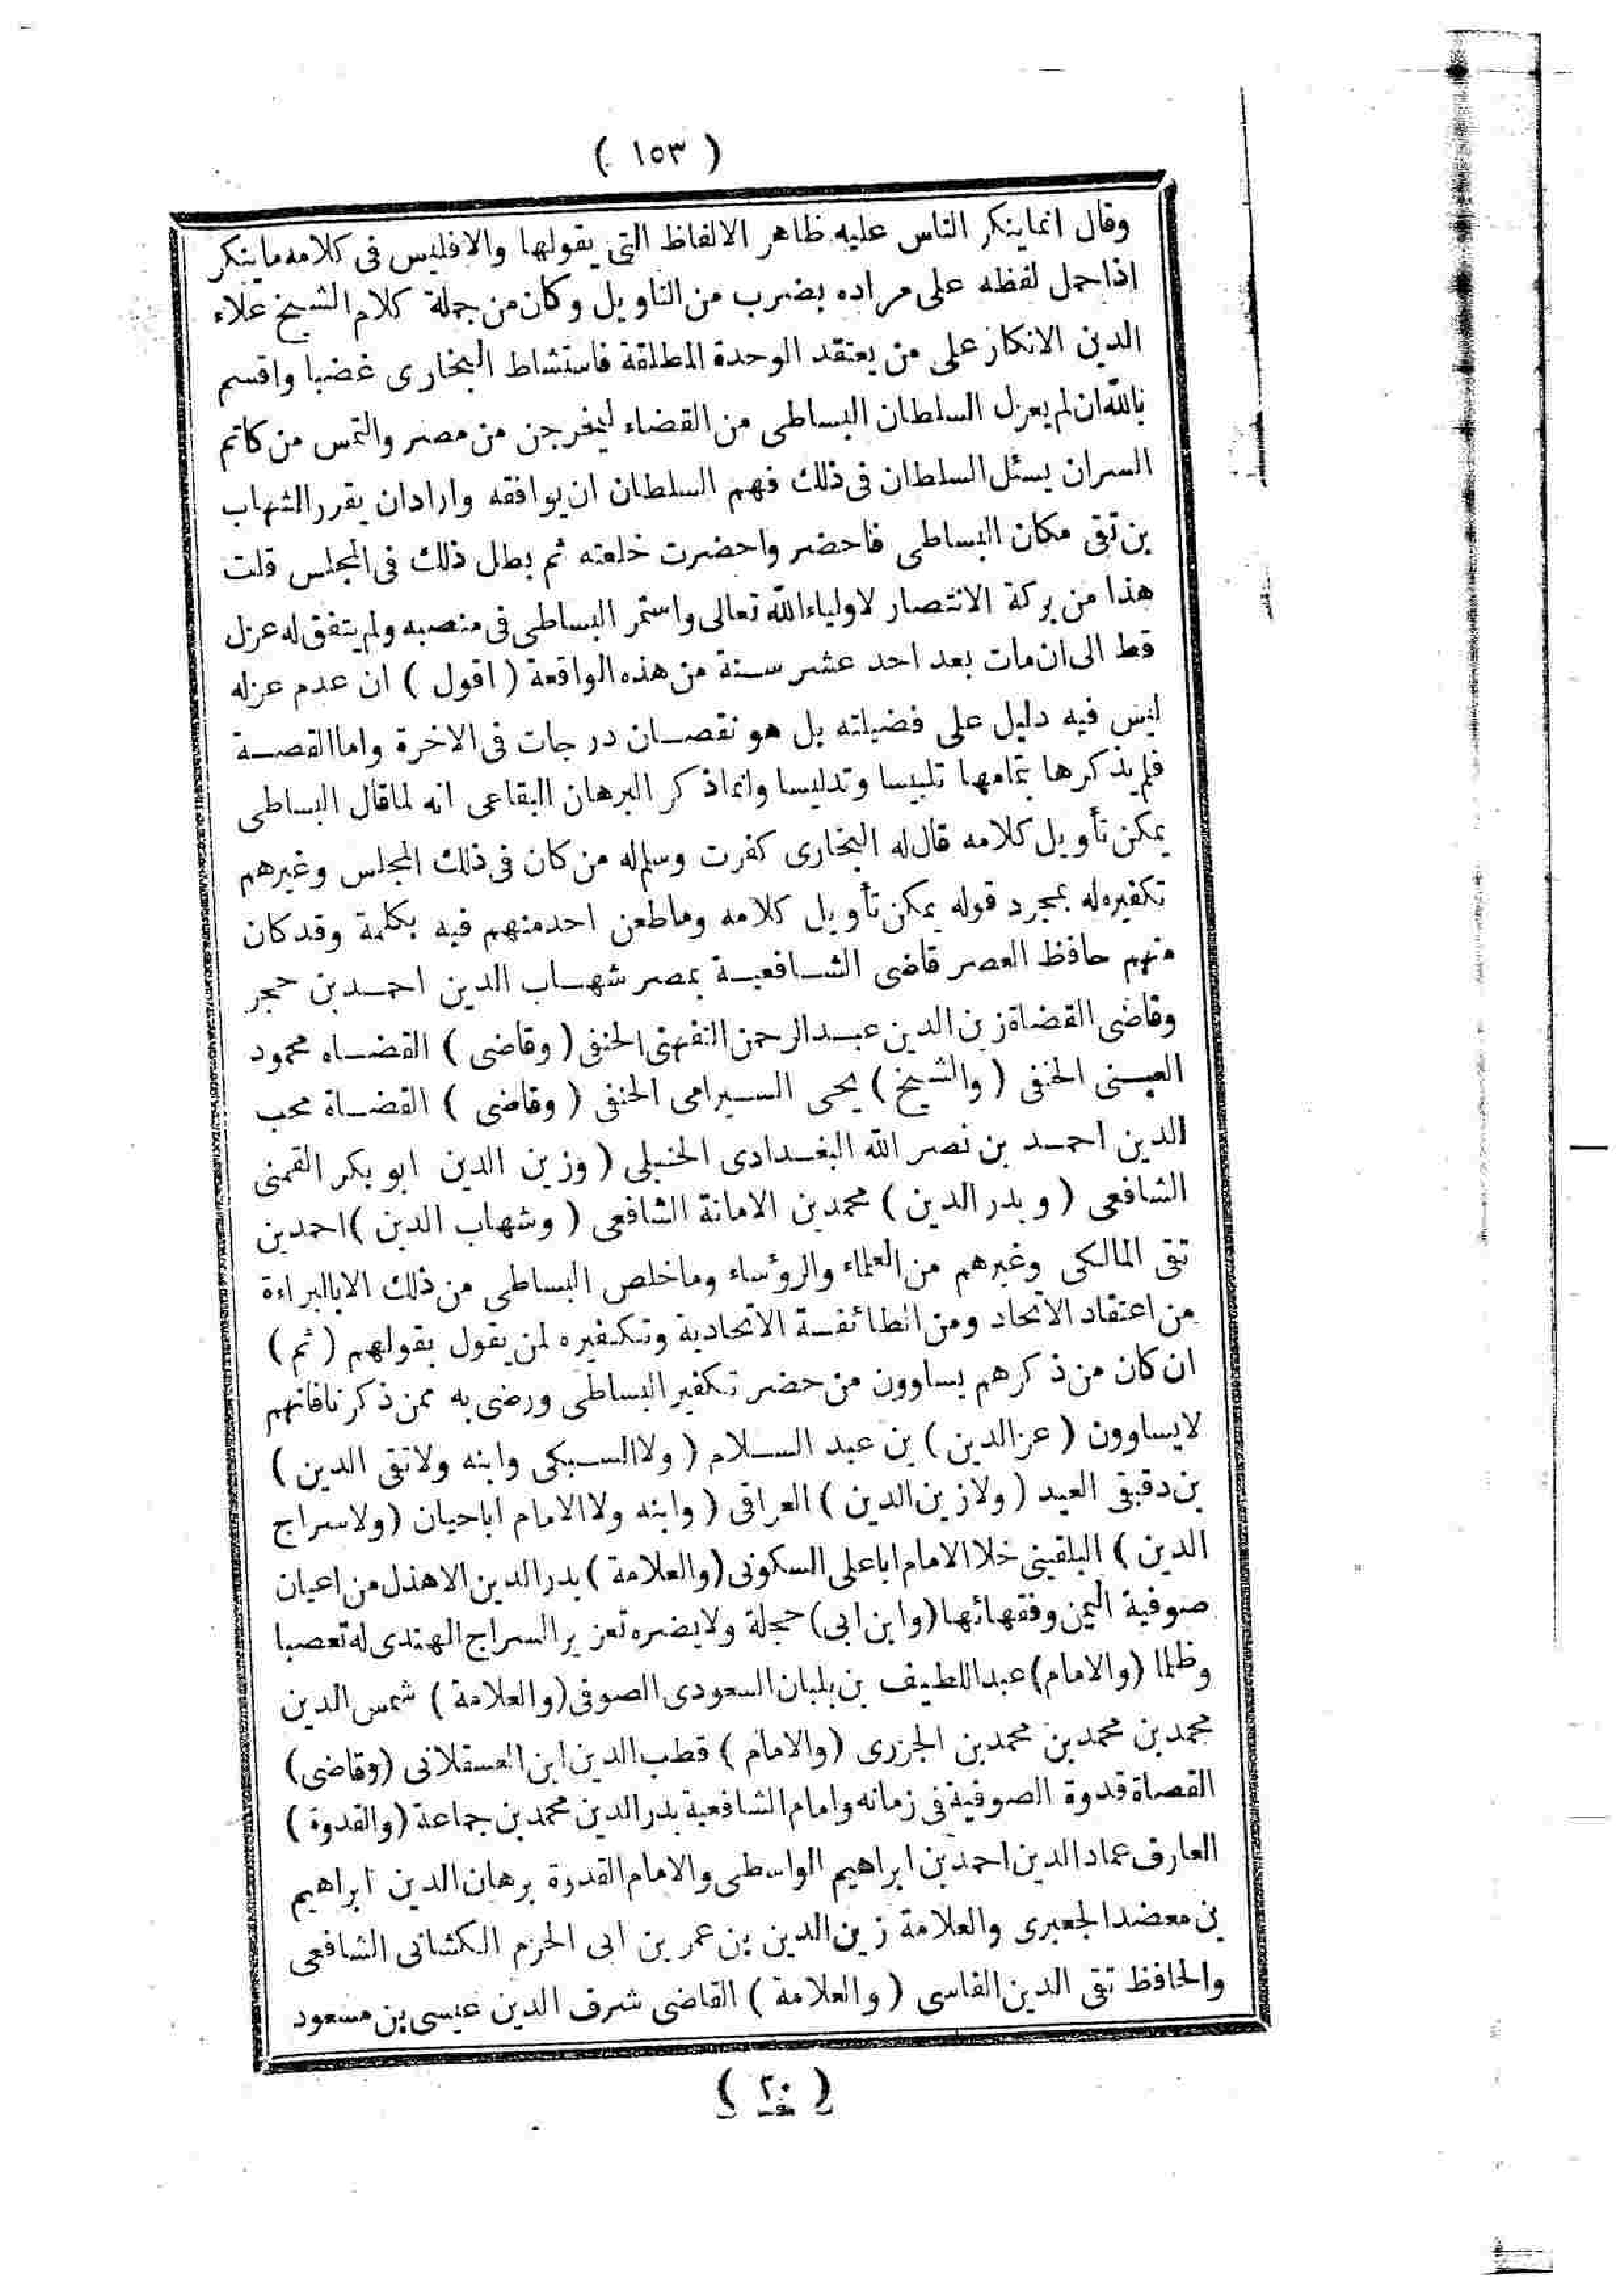 ( ١٥٣ )
وقال انما ينكر الناس عليه ظاهر الالفاظ التى يقولها والا فليس فى كلامه ما ينكر
اذا حمل لفظه على مراده بضرب من التاويل وكان من جملة كلام الشيخ علاء
الدين الانكار على من يعتقد الوحدة المطلقة فاستشاط البخارى غضبا واقسم
بالله ان لم يعزل السلطان البساطى من القضاء ليخرجن من مصر والتمس من كاتم
السران يسئل السلطان فى ذلك فهم السلطان ان يوافقه وارادان يقرر الشهاب
بن تقى مكان البساطى فاحضر واحضرت خلعته ثم بطل ذلك فى المجلس قلت
هذا من بركة الانتصار لاولياء الله تعالى واستمر البساطى فى منصبه ولم يتفق له عزل
قط الى ان مات بعد احد عشر سنة من هذه الواقعة ( اقول ) ان عدم عزله
ليس فيه دليل على فضيلته بل هو نقصان درجات فى الاخرة واما القصة
فلم يذكرها بتمامها تلبيسا وتدليسا وانما ذكر البرهان البقاعى انه لما قال البساطى
يمكن تأويل كلامه قال له البخارى كفرت وسلم له من كان فى ذلك المجلس وغيرهم
تكفيره له بمجرد قوله يمكن تأويل كلامه وما طعن احد منهم فيه بكلمة وقد كان
منهم حافظ العصر قاضى الشافعية بمصر شهاب الدين احمد بن حجر
وقاضى القضاة زين الدين عبد الرحمن التفهنى الحنفى ( وقاضى ) القضاه محمود
العينى الحنفى ( والشيخ ) يحى السيرامى الحنفى ( وقاضى ) القضاة محب
الدين احمد بن نصر الله البغدادى الحنبلى ( وزين الدين ابو بكر القمنى
الشافعى ( وبدر الدين ) محمد بن الامانة الشافعى ( وشهاب الدين ) احمد بن
تقى المالكى وغيرهم من العلماء والرؤساء وما خلص البساطى من ذلك الا بالبراءة
من اعتقاد الاتحاد ومن الطائفة الاتحادية وتكفيره لمن يقول بقولهم ( ثم )
ان كان من ذكرهم يساوون من حضر تكفير البساطى ورضى به ممن ذكرنا فانهم
لا يساوون ( عز الدين ) بن عبد السلام ( ولا السبكى وابنه ولا تقى الدين )
بن دقيق العيد ( ولا زين الدين ) العراقى ( وابنه ولا الامام اباحيان ( ولا سراج
الدين ) البلقينى خلا الامام اباعلى السكونى ( والعلامة ) بدر الدين الاهذل من اعيان
صوفية اليمن وفقهائها ( وابن ابى ) حجلة ولا يضره تعزير السراج الهندى له تعصبا
وظلما ( والامام ) عبد اللطيف بن بلبان السعودى الصوفى ( والعلامة ) شمس الدين
محمد بن محمد بن محمد بن الجزرى ( والامام ) قطب الدين ابن العسقلانى ( وقاضى )
القضاة قدوة الصوفية فى زمانه وامام الشافعية بدر الدين محمد بن جماعة ( والقدوة )
العارف عماد الدين احمد بن ابراهيم الواسطى والامام القدوة برهان الدين ابراهيم
بن معضد الجعبرى والعلامة زين الدين بن عمر بن ابى الحزم الكشانى الشافعى
والحافظ تقى الدين الفاسى ( والعلامة ) القاضى شرف الدين عيسى بن مسعود
( ٢٠ )